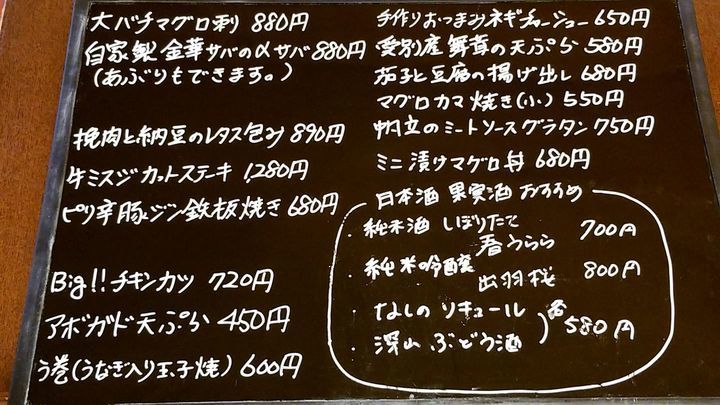 大バチマグロ刺 880円
自家製金華サバの〆サバ 880円
(あぶりもできます。)
挽肉と納豆のレタス包み 890円
牛ミスジカットステキ 1,280円
ピリ辛豚レジン鉄板焼き 680円
Big!!チキンカツ 720円
アボガド天ぷら 450円
う巻(うなぎ入り玉子焼) 600円
手作りおつまみネギチャーシュー 650円
愛別産舞茸の天ぷら 580円
茄子と豆腐の揚げ出し 680円
マグロカマ焼き(小) 550円
帆立のミートソースグラタン 750円
ミニ漬けマグロ丼 680円
日本酒 果実酒 おすすめ
・純米酒 しぼりたて
春うらら 700円
・純米吟醸
出羽桜 800円
・なしのリキュール
・深山ぶどう酒 各580円